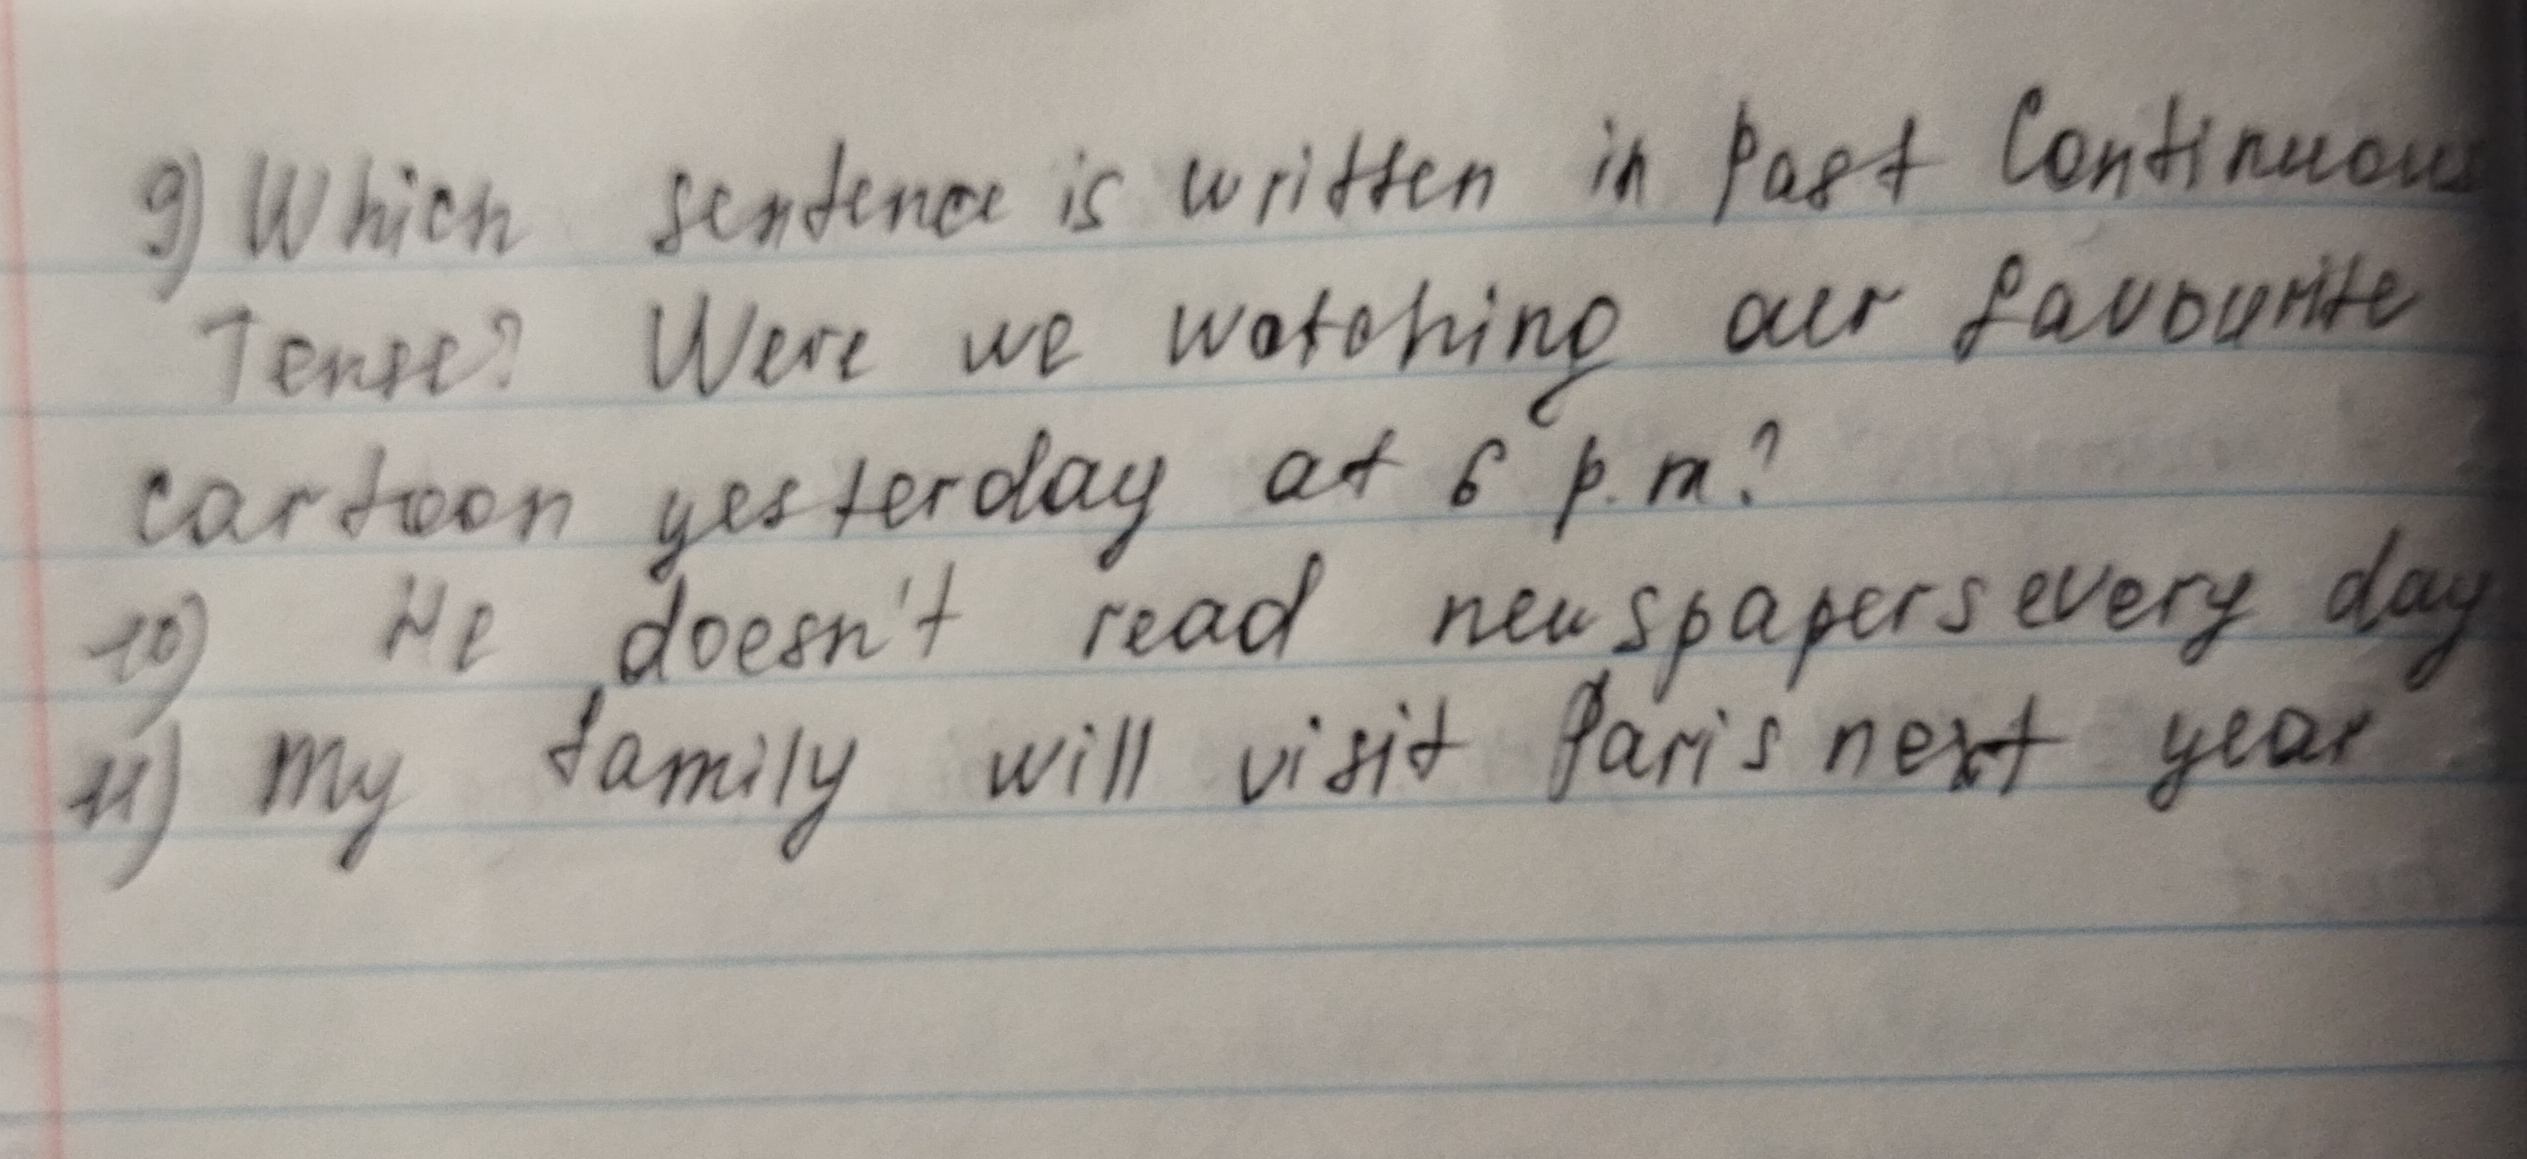 9) Which sentence is written in Past Continuous
Tense? Were we watching our favourite
cartoon yesterday at 6 p.m?
10) He doesn't read newspapers every day
11) My family will visit Paris next year